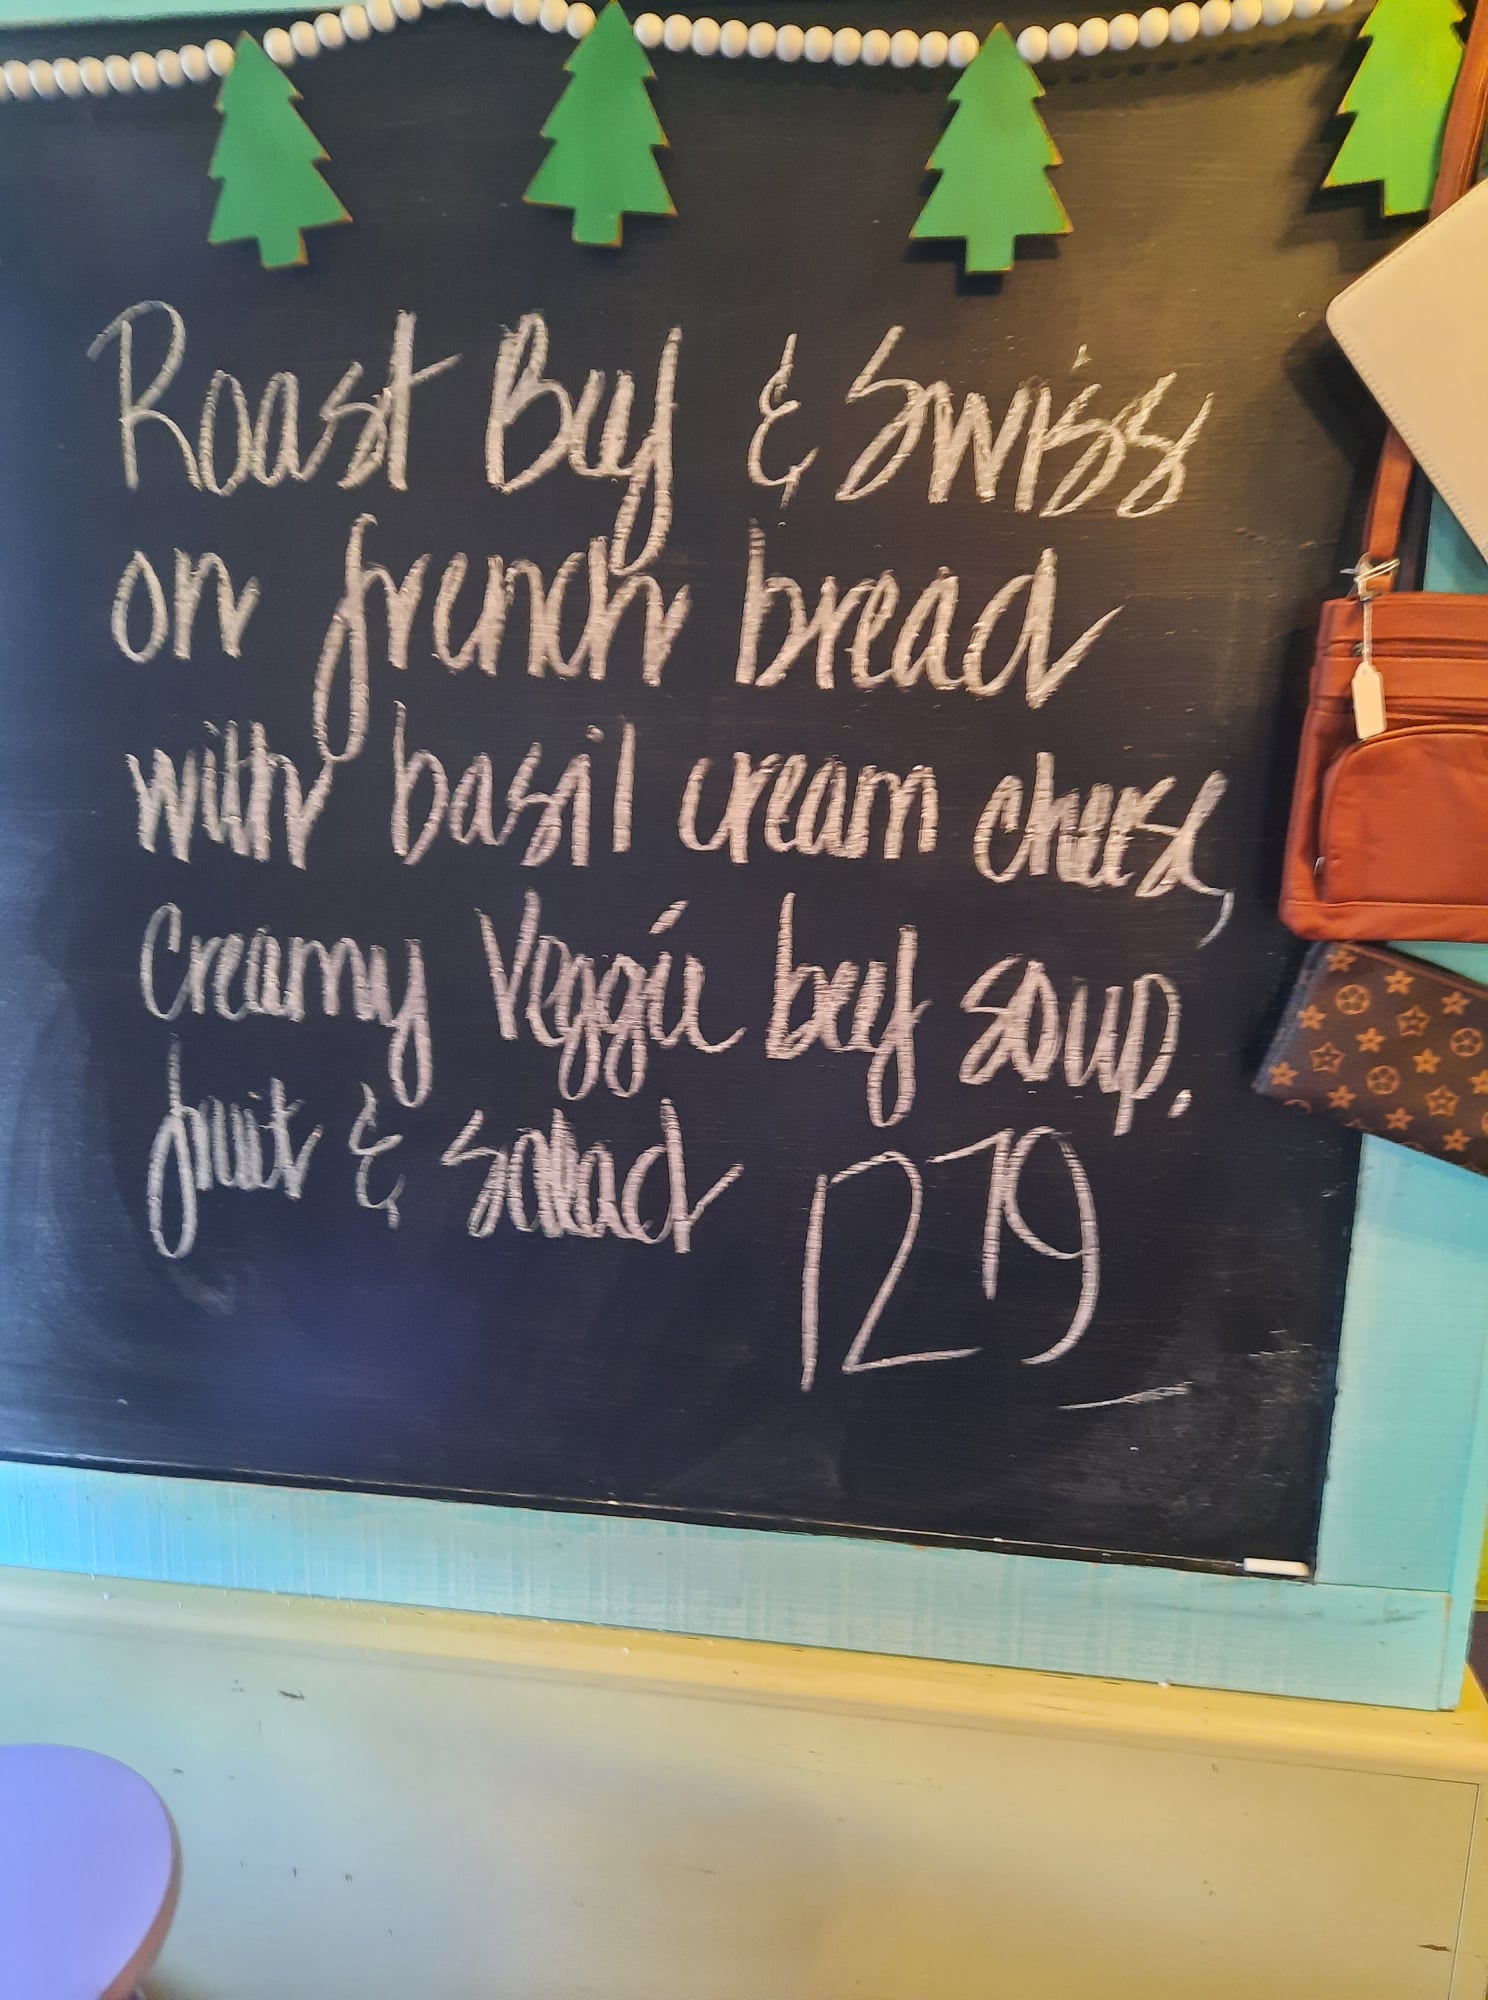 Roast Beef & Swiss
on french bread
with basil cream cheese,
Creamy Veggie beef soup.
fruit & salad 12 79